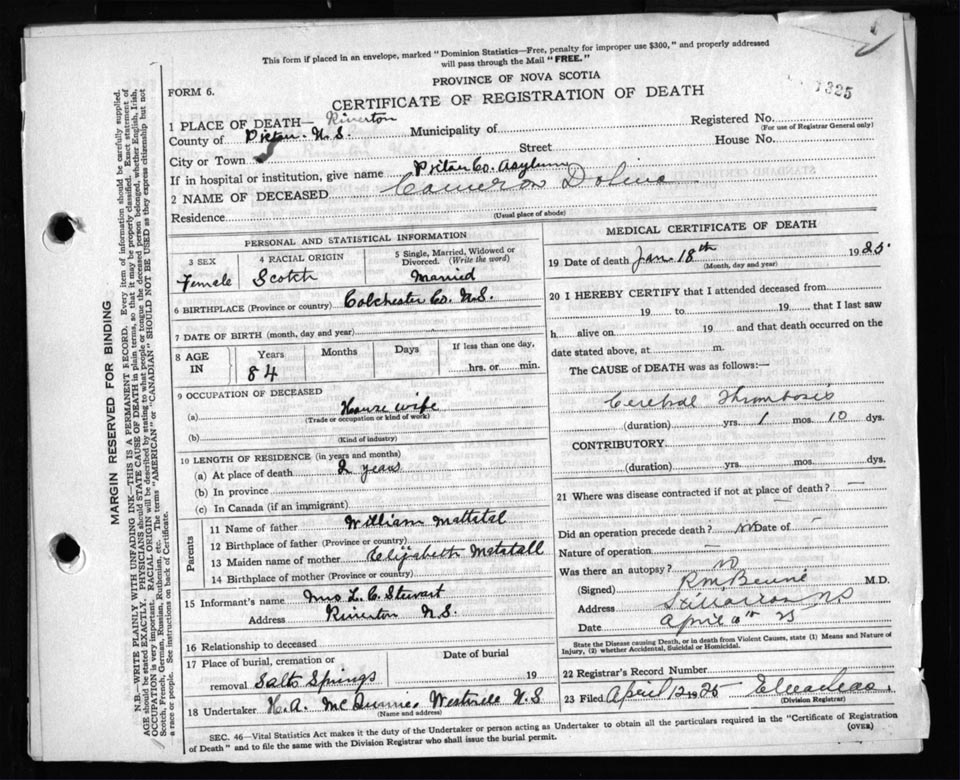 This form if placed in an envelope, marked "Dominion Statistics—Free, penalty for improper use $300," and properly addressed
will pass through the Mail "FREE."
PROVINCE OF NOVA SCOTIA
FORM 6.
CERTIFICATE OF REGISTRATION OF DEATH
1325
1 PLACE OF DEATH— Riverton
Registered No.
(For use of Registrar General only)
County of Pictou. N. S. Municipality of
City or Town Street House No.
If in hospital or institution, give name Pictou Co. Asylum
2 NAME OF DECEASED Cameron Dolina
Residence
(Usual place of abode)
PERSONAL AND STATISTICAL INFORMATION
3 SEX 4 RACIAL ORIGIN 5 Single, Married, Widowed or
Divorced. (Write the word)
Female Scotch Married
6 BIRTHPLACE (Province or country) Colchester Co. N. S.
7 DATE OF BIRTH (month, day and year)
8 AGE IN Years Months Days If less than one day,
84 hrs. or min.
9 OCCUPATION OF DECEASED
(a) House wife
(Trade or occupation or kind of work)
(b)
(Kind of industry)
10 LENGTH OF RESIDENCE (in years and months)
(a) At place of death 2 years
(b) In province
(c) In Canada (if an immigrant)
Parents
11 Name of father William
12 Birthplace of father (Province or country)
13 Maiden name of mother Elizabeth
14 Birthplace of mother (Province or country)
15 Informant's name Mrs L. C. Stewart
Address Riverton N. S.
16 Relationship to deceased
17 Place of burial, cremation or Date of burial
removal Salt Springs 19
18 Undertaker H. A. Westville N. S
(Name and address)
MEDICAL CERTIFICATE OF DEATH
19 Date of death Jan. 18th 1925
(Month, day and year)
20 I HEREBY CERTIFY that I attended deceased from
19 to 19 that I last saw
h alive on 19 and that death occurred on the
date stated above, at m.
The CAUSE of DEATH was as follows:—
Cerebral Thrombosis
(duration) yrs. 1 mos. 10 dys.
CONTRIBUTORY
(duration) yrs. mos. dys.
21 Where was disease contracted if not at place of death? —
Did an operation precede death? no Date of —
Nature of operation —
Was there an autopsy? no
(Signed) M.D.
Address Stellarton NS
Date April 10th 25
State the Disease causing Death, or in death from Violent Causes, state (1) Means and Nature of
Injury, (2) whether Accidental, Suicidal or Homicidal.
22 Registrar's Record Number
23 Filed April 12 1925
(Division Registrar)
SEC. 46—Vital Statistics Act makes it the duty of the Undertaker or person acting as Undertaker to obtain all the particulars required in the "Certificate of Registration
of Death" and to file the same with the Division Registrar who shall issue the burial permit.
(OVER)
MARGIN RESERVED FOR BINDING
N.B.—WRITE PLAINLY WITH UNFADING INK—THIS IS A PERMANENT RECORD. Every item of information should be carefully supplied.
AGE should be stated EXACTLY. PHYSICIANS should STATE CAUSE OF DEATH in plain terms, so that it may be properly classified. Exact statement of
OCCUPATION is very important. RACIAL ORIGIN will be described by stating to what people or tongue the deceased person belonged, whether English, Irish,
Scotch, French, German, Russian, Ruthenian, etc. The terms "AMERICAN" or "CANADIAN" SHOULD NOT BE USED as they express citizenship but not
a race or people. See instructions on back of Certificate.